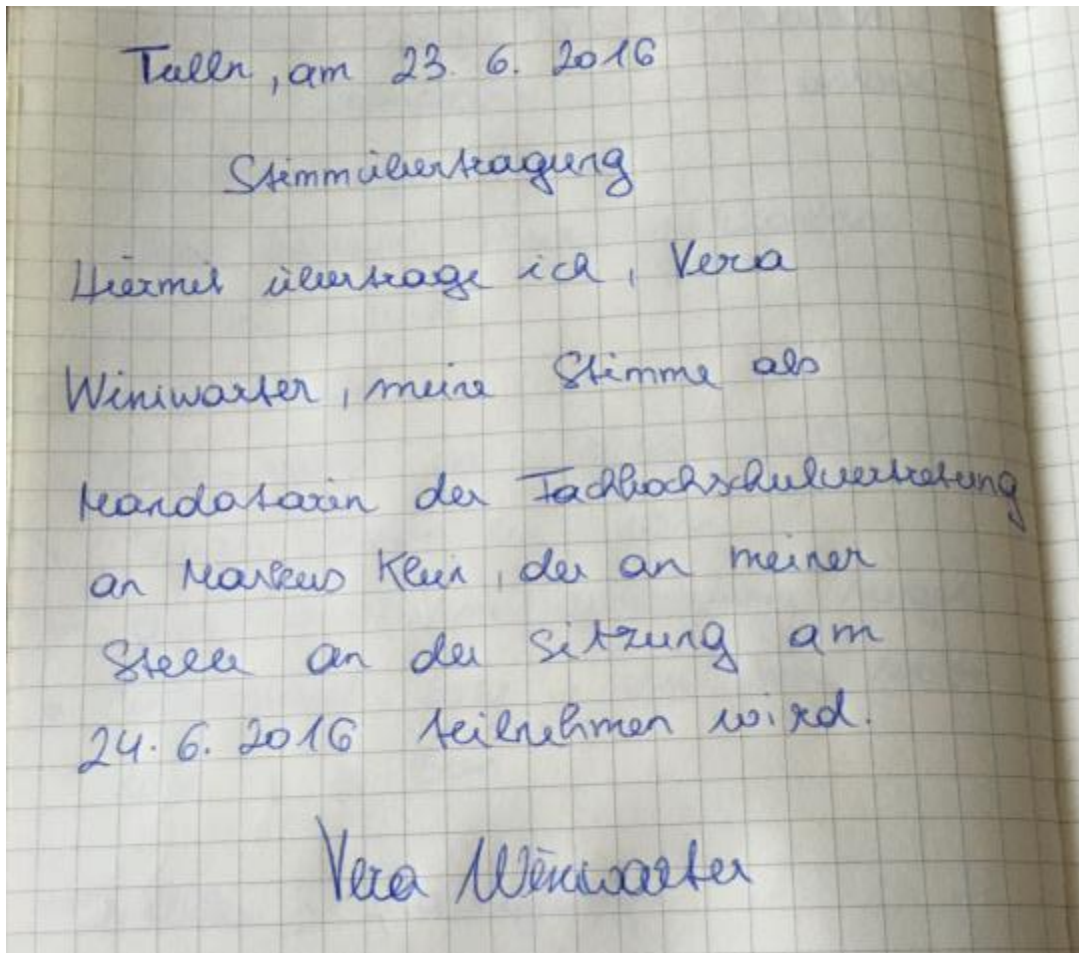 Tulln, am 23. 6. 2016
Stimmübertragung
Hiermit übertrage ich, Vera
Winiwarter, meine Stimme als
Mandatarin der Fachhochschulvertretung
an Markus Klein, der an meiner
Stelle an der Sitzung am
24. 6. 2016 teilnehmen wird.
Vera Winiwarter